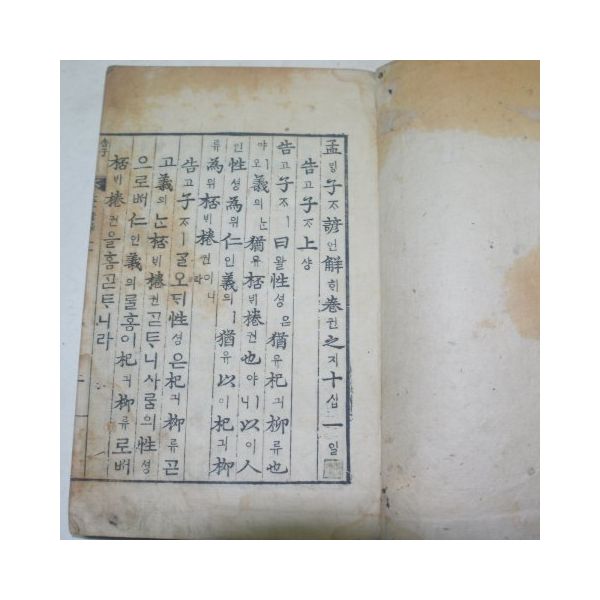 孟밍子ᄌᆞ諺언解ᄒᆡ卷권之지十십一일
告고子ᄌᆞ上샹
告고子ᄌᆞㅣ曰왈性셩은猶유杞긔柳류也
야ㅣ오義의ᄂᆞᆫ猶유桮ᄇᆡ棬권也야ㅣ니以이人
인性셩爲위仁인義의ㅣ猶유以이杞긔柳
류爲위桮ᄇᆡ棬권이니라
告고子ᄌᆞㅣᄀᆞᆯ오ᄃᆡ性셩은杞긔柳류ᄀᆞᆮ
고義의ᄂᆞᆫ桮ᄇᆡ棬권ᄀᆞᆮᄐᆞ니사ᄅᆞᆷ의性셩
으로ᄡᅥ仁인義의ᄅᆞᆯᄒᆞᆷ이杞긔柳류로ᄡᅥ
桮ᄇᆡ棬권을ᄒᆞᆷᄀᆞᆮᄐᆞ니라